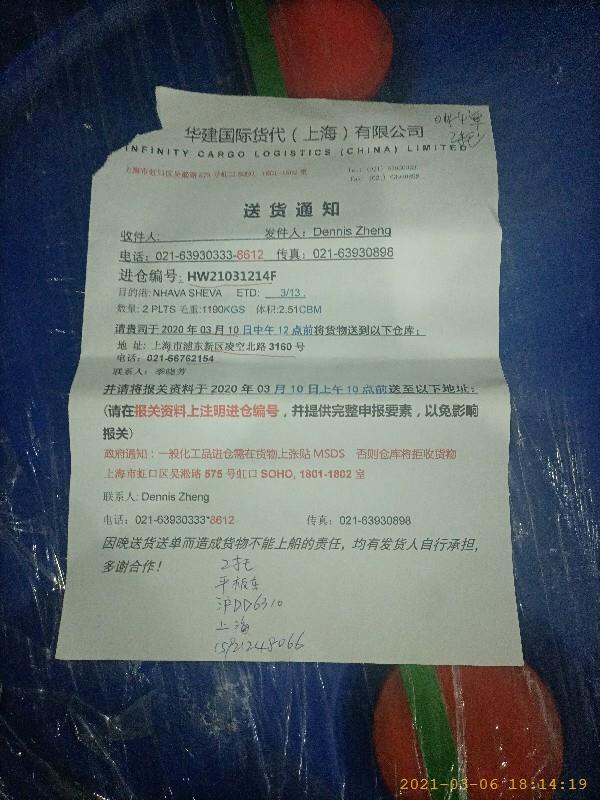 华建国际货代（上海）有限公司
INFINITY CARGO LOGISTICS (CHINA) LIMITED
2托
上海市虹口区吴淞路 575 号虹口 SOHO, 1801-1802 室
Tel: (021) 63930333
Fax: (021) 63930898
送 货 通 知
收件人: 发件人: Dennis Zheng
电话: 021-63930333-8612 传真: 021-63930898
进仓编号: HW21031214F
目的港: NHAVA SHEVA ETD: 3/13.
数量: 2 PLTS 毛重:1190KGS 体积:2.51CBM
请贵司于 2020 年 03 月 10 日中午 12 点前将货物送到以下仓库:
地 址: 上海市浦东新区凌空北路 3160 号
电话: 021-66762154
联系人: 季晓芳
并请将报关资料于 2020 年 03 月 10 日上午 10 点前送至以下地址:
(请在报关资料上注明进仓编号，并提供完整申报要素，以免影响
报关)
政府通知: 一般化工品进仓需在货物上张贴 MSDS 否则仓库将拒收货物
上海市虹口区吴淞路 575 号虹口 SOHO, 1801-1802 室
联系人: Dennis Zheng
电话: 021-63930333*8612 传真: 021-63930898
因晚送货送单而造成货物不能上船的责任，均有发货人自行承担，
多谢合作!
2托
平板车
沪DD6310
上海
15921248066
2021-03-06 18:14:19